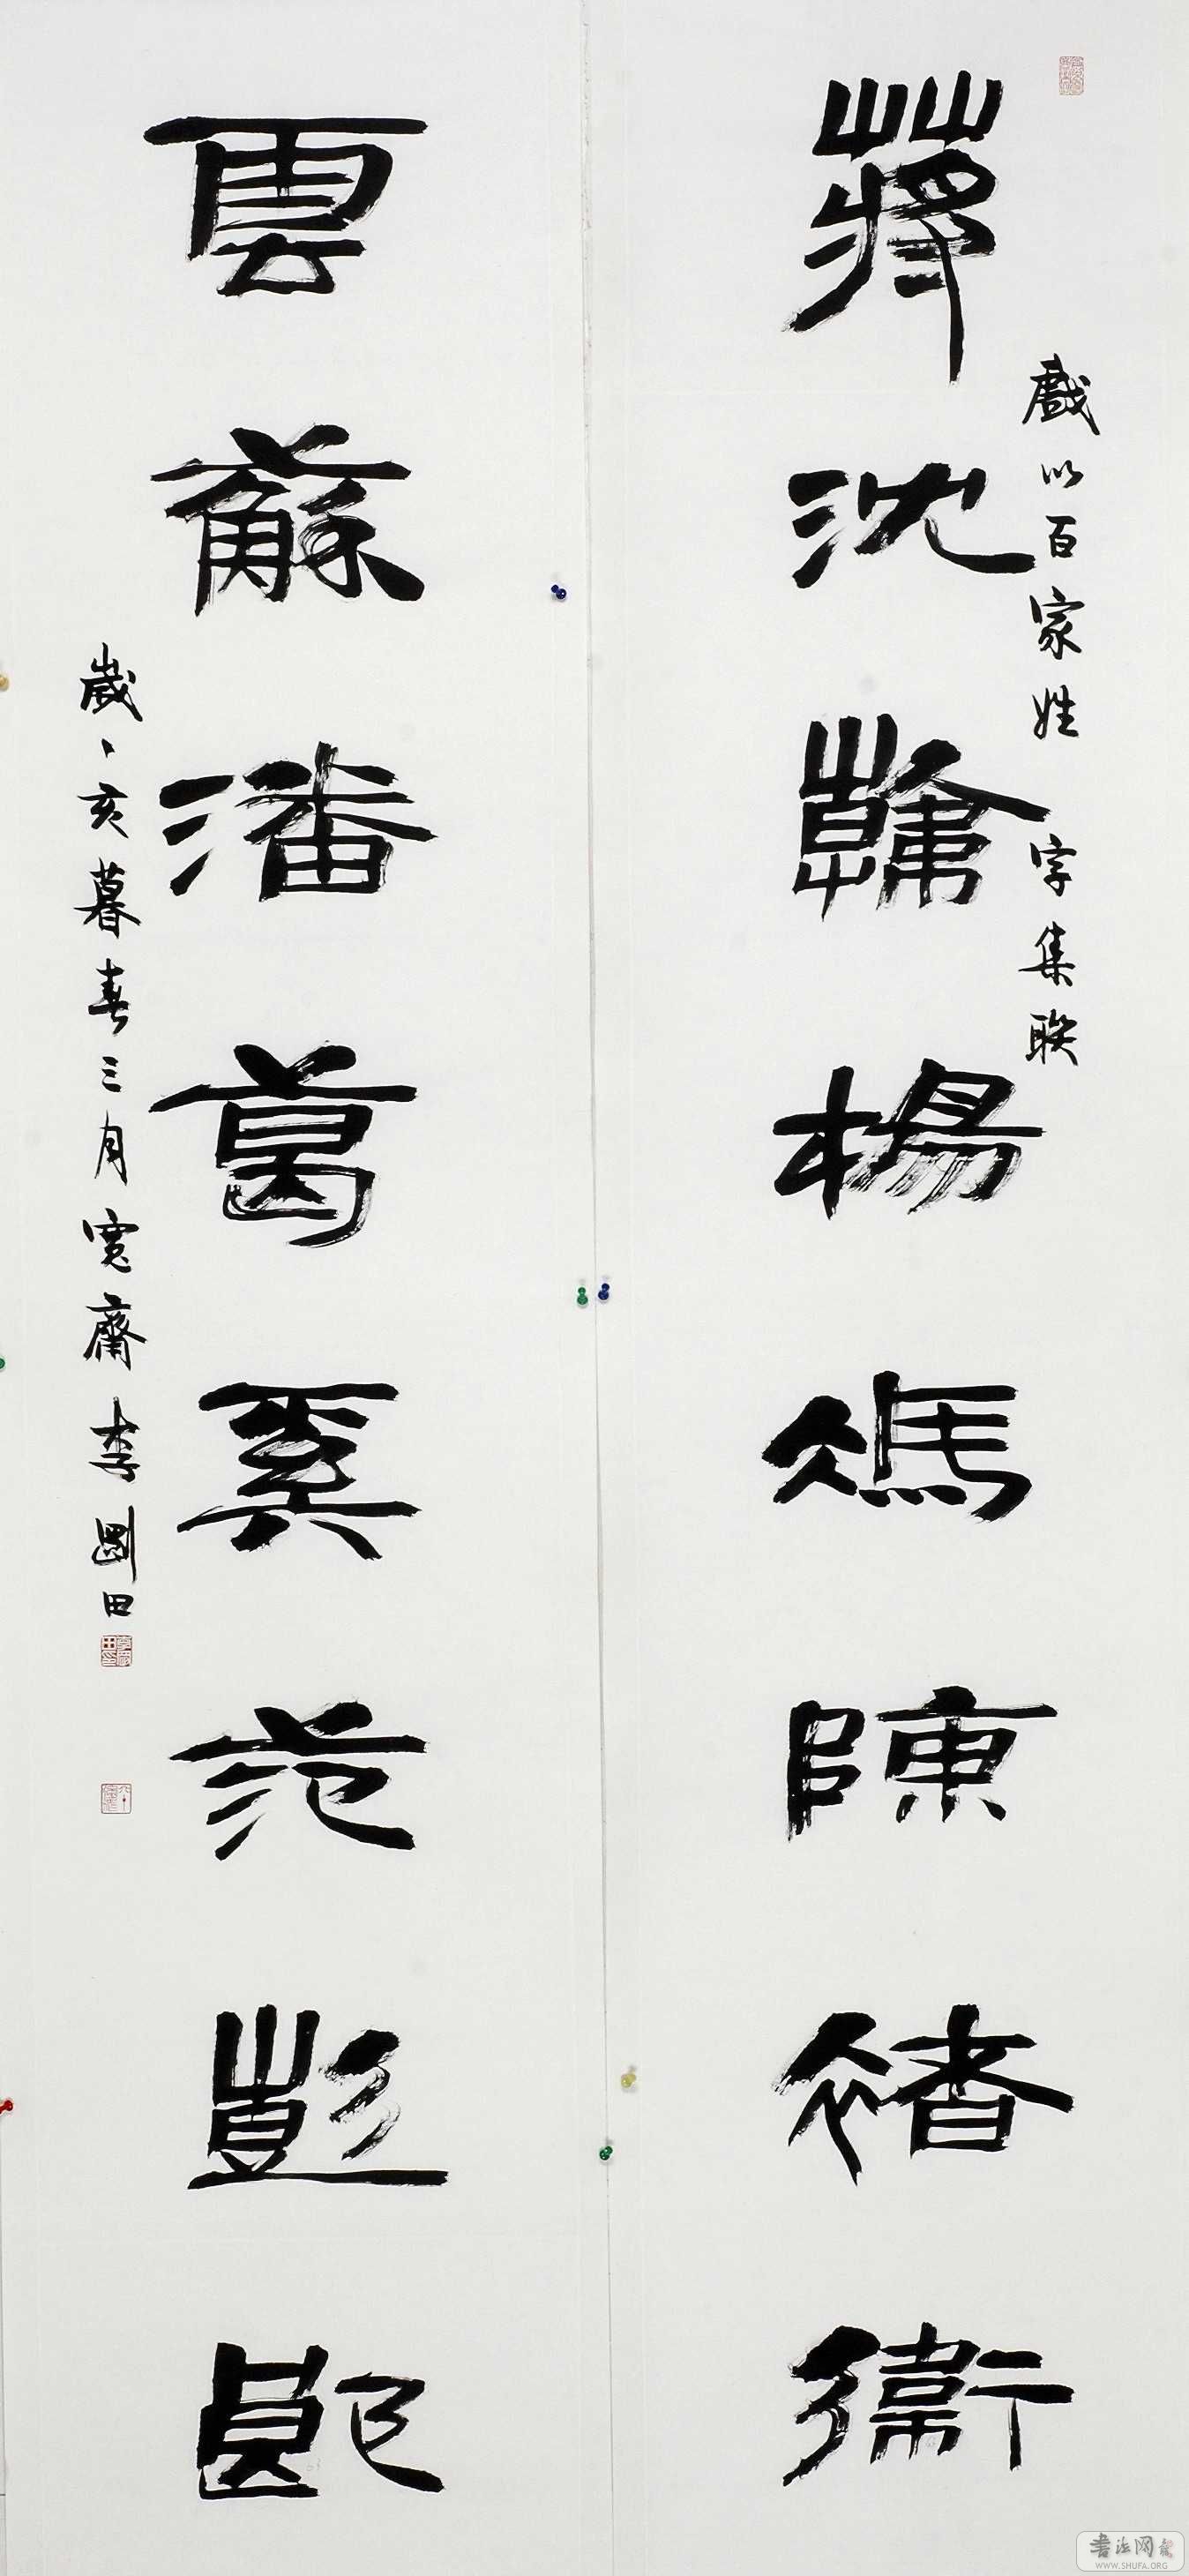 蔣沈韓楊馮陳褚衛
戲以百家姓字集联
雲蘇潘葛奚范彭郎
歲丁亥暮春三月寬齋李剛田
書法网
WWW.SHUFA.ORG